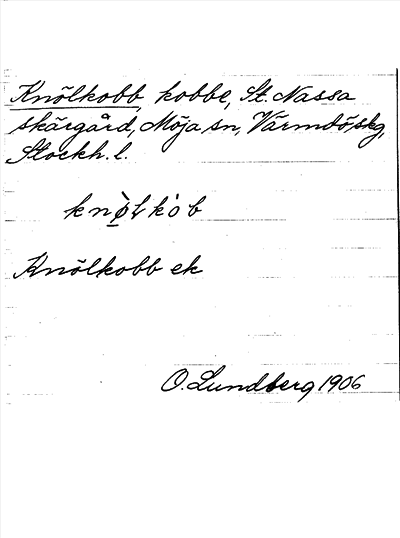 Knölkobb, kobbe, St. Nassa
skärgård, Möja sn, Värmdö skg,
Stockh. l.
knø̀lkòb
Knölkobb ek
O. Lundberg 1906